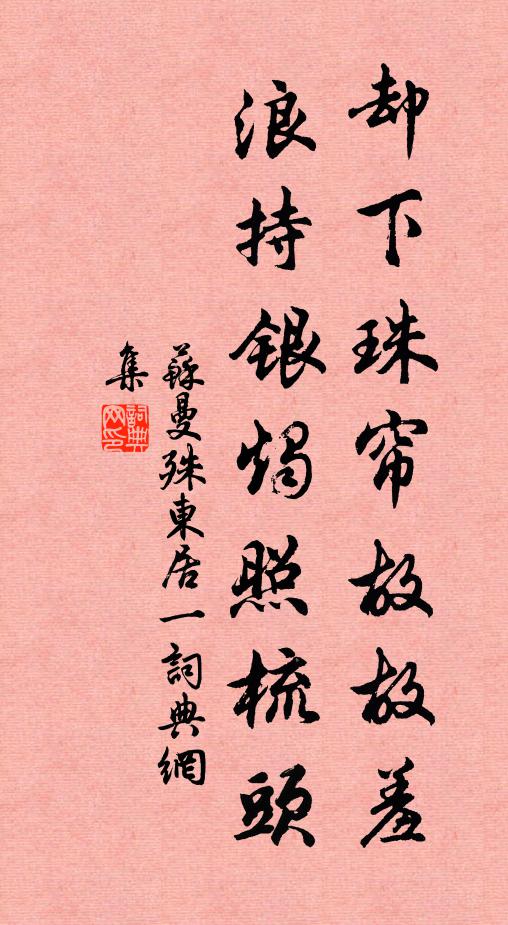 却下珠帘故故羞
浪持銀燭照梳頭
蘇曼殊東居一詞典網
集
詞典网印